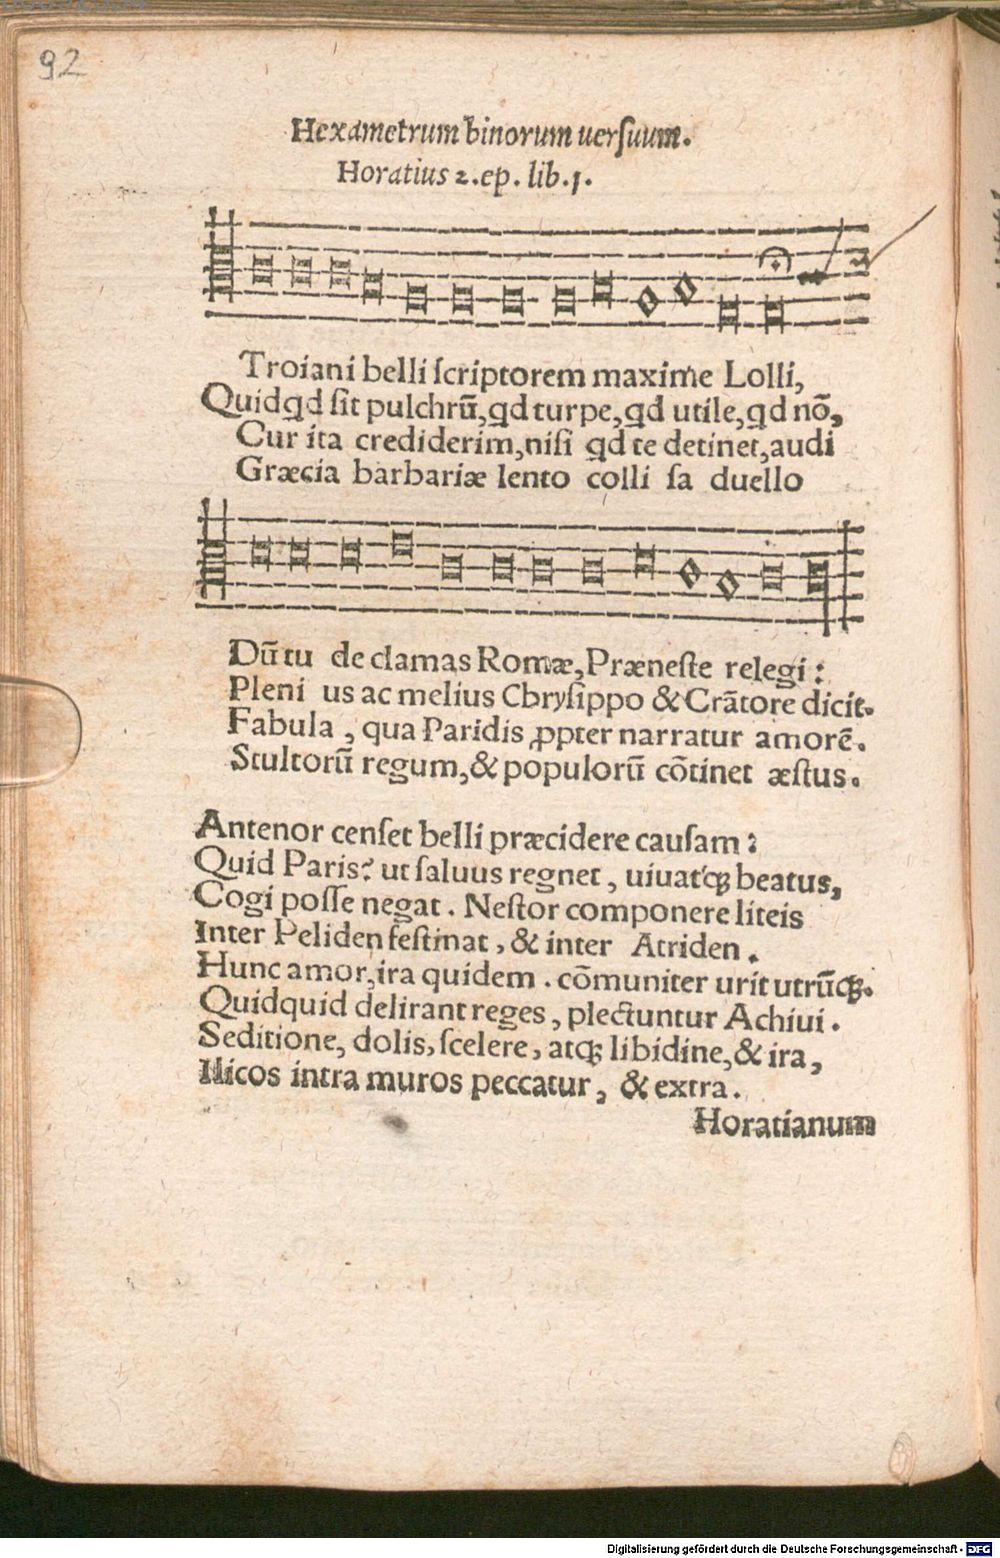 92
Hexametrum binorum uersuum.
Horatius 2.ep. lib.1.
Troiani belli scriptorem maxime Lolli,
Quidqd sit pulchrū, qd turpe, qd utile, qd nō,
Cur ita crediderim, nisi qd te detinet, audi
Græcia barbariæ lento colli sa duello
Dū tu de clamas Romæ, Præneste relegi:
Pleni us ac melius Chrysippo & Crātore dicit.
Fabula, qua Paridis ꝓpter narratur amorē.
Stultorū regum, & populorū cōtinet æstus.
Antenor censet belli præcidere causam:
Quid Paris? ut saluus regnet, uiuatqꝫ beatus,
Cogi posse negat. Nestor componere liteis
Inter Peliden festinat, & inter Atriden.
Hunc amor, ira quidem. cōmuniter urit utrūqꝫ.
Quidquid delirant reges, plectuntur Achiui.
Seditione, dolis, scelere, atqꝫ libidine, & ira,
Ilicos intra muros peccatur, & extra.
Horatianum
Digitalisierung gefördert durch die Deutsche Forschungsgemeinschaft - DFG